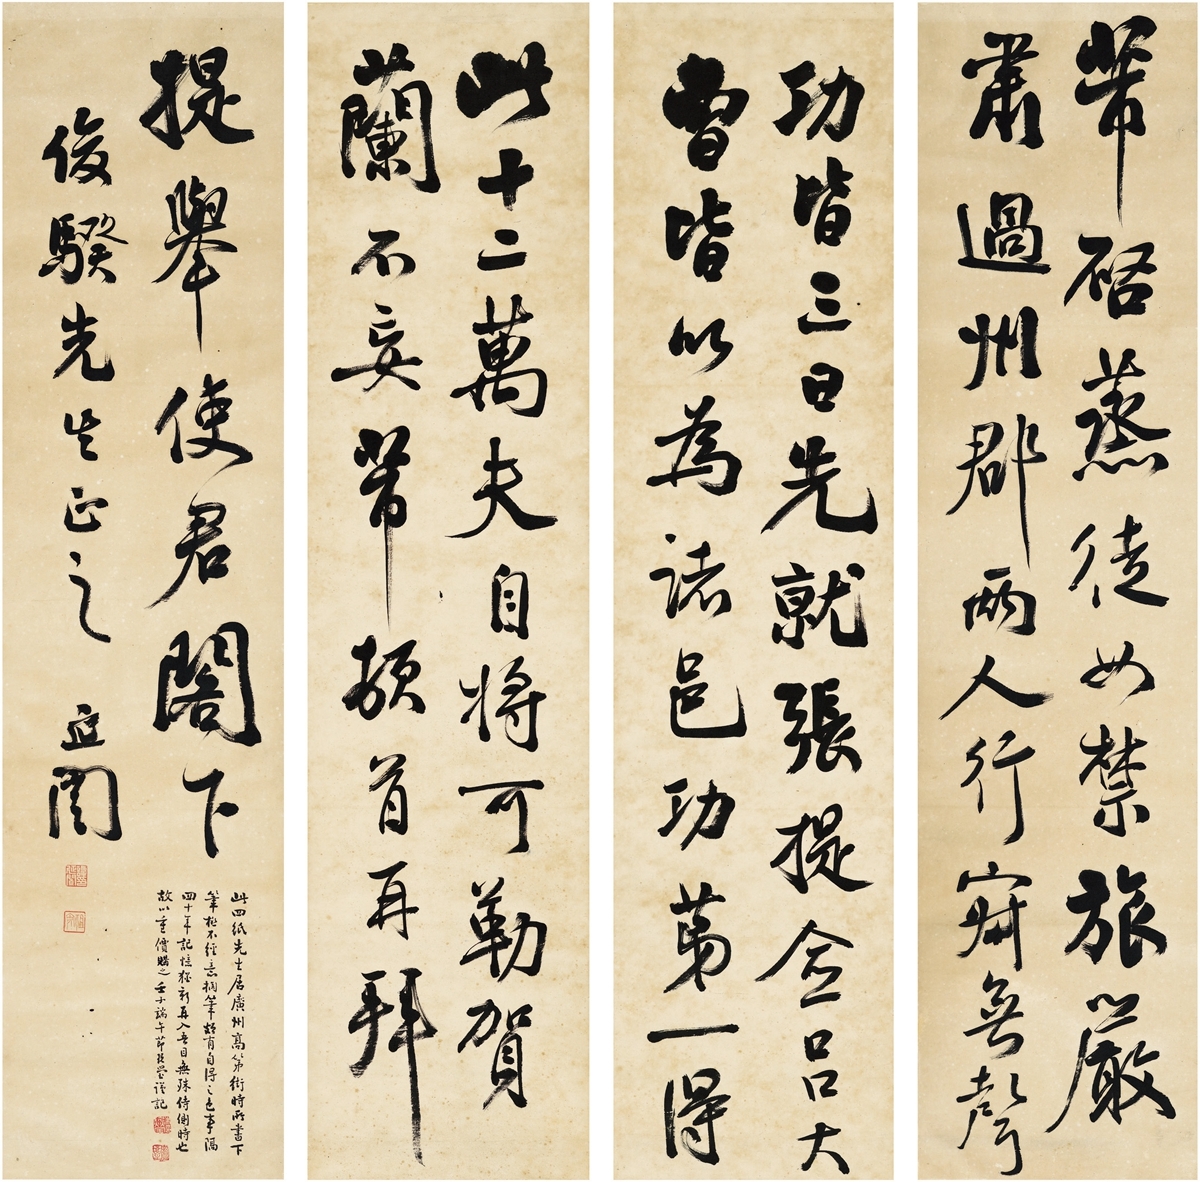 芾啓蒸徒如禁旅嚴
肅過州郡兩人行寂無聲
功皆三日先就張提倉呂大
曹皆以為諸邑功第一得
此十二萬夫自將可勒賀
蘭不妄芾頓首再拜
提舉使君閣下
俊騤先生正之
此四紙先生居廣州高第街時所書下
筆極不經意擱筆頗有自得之色事隔
四十年記憶猶新再入吾目無殊侍側時也
故以重價購之壬子端午節謹記